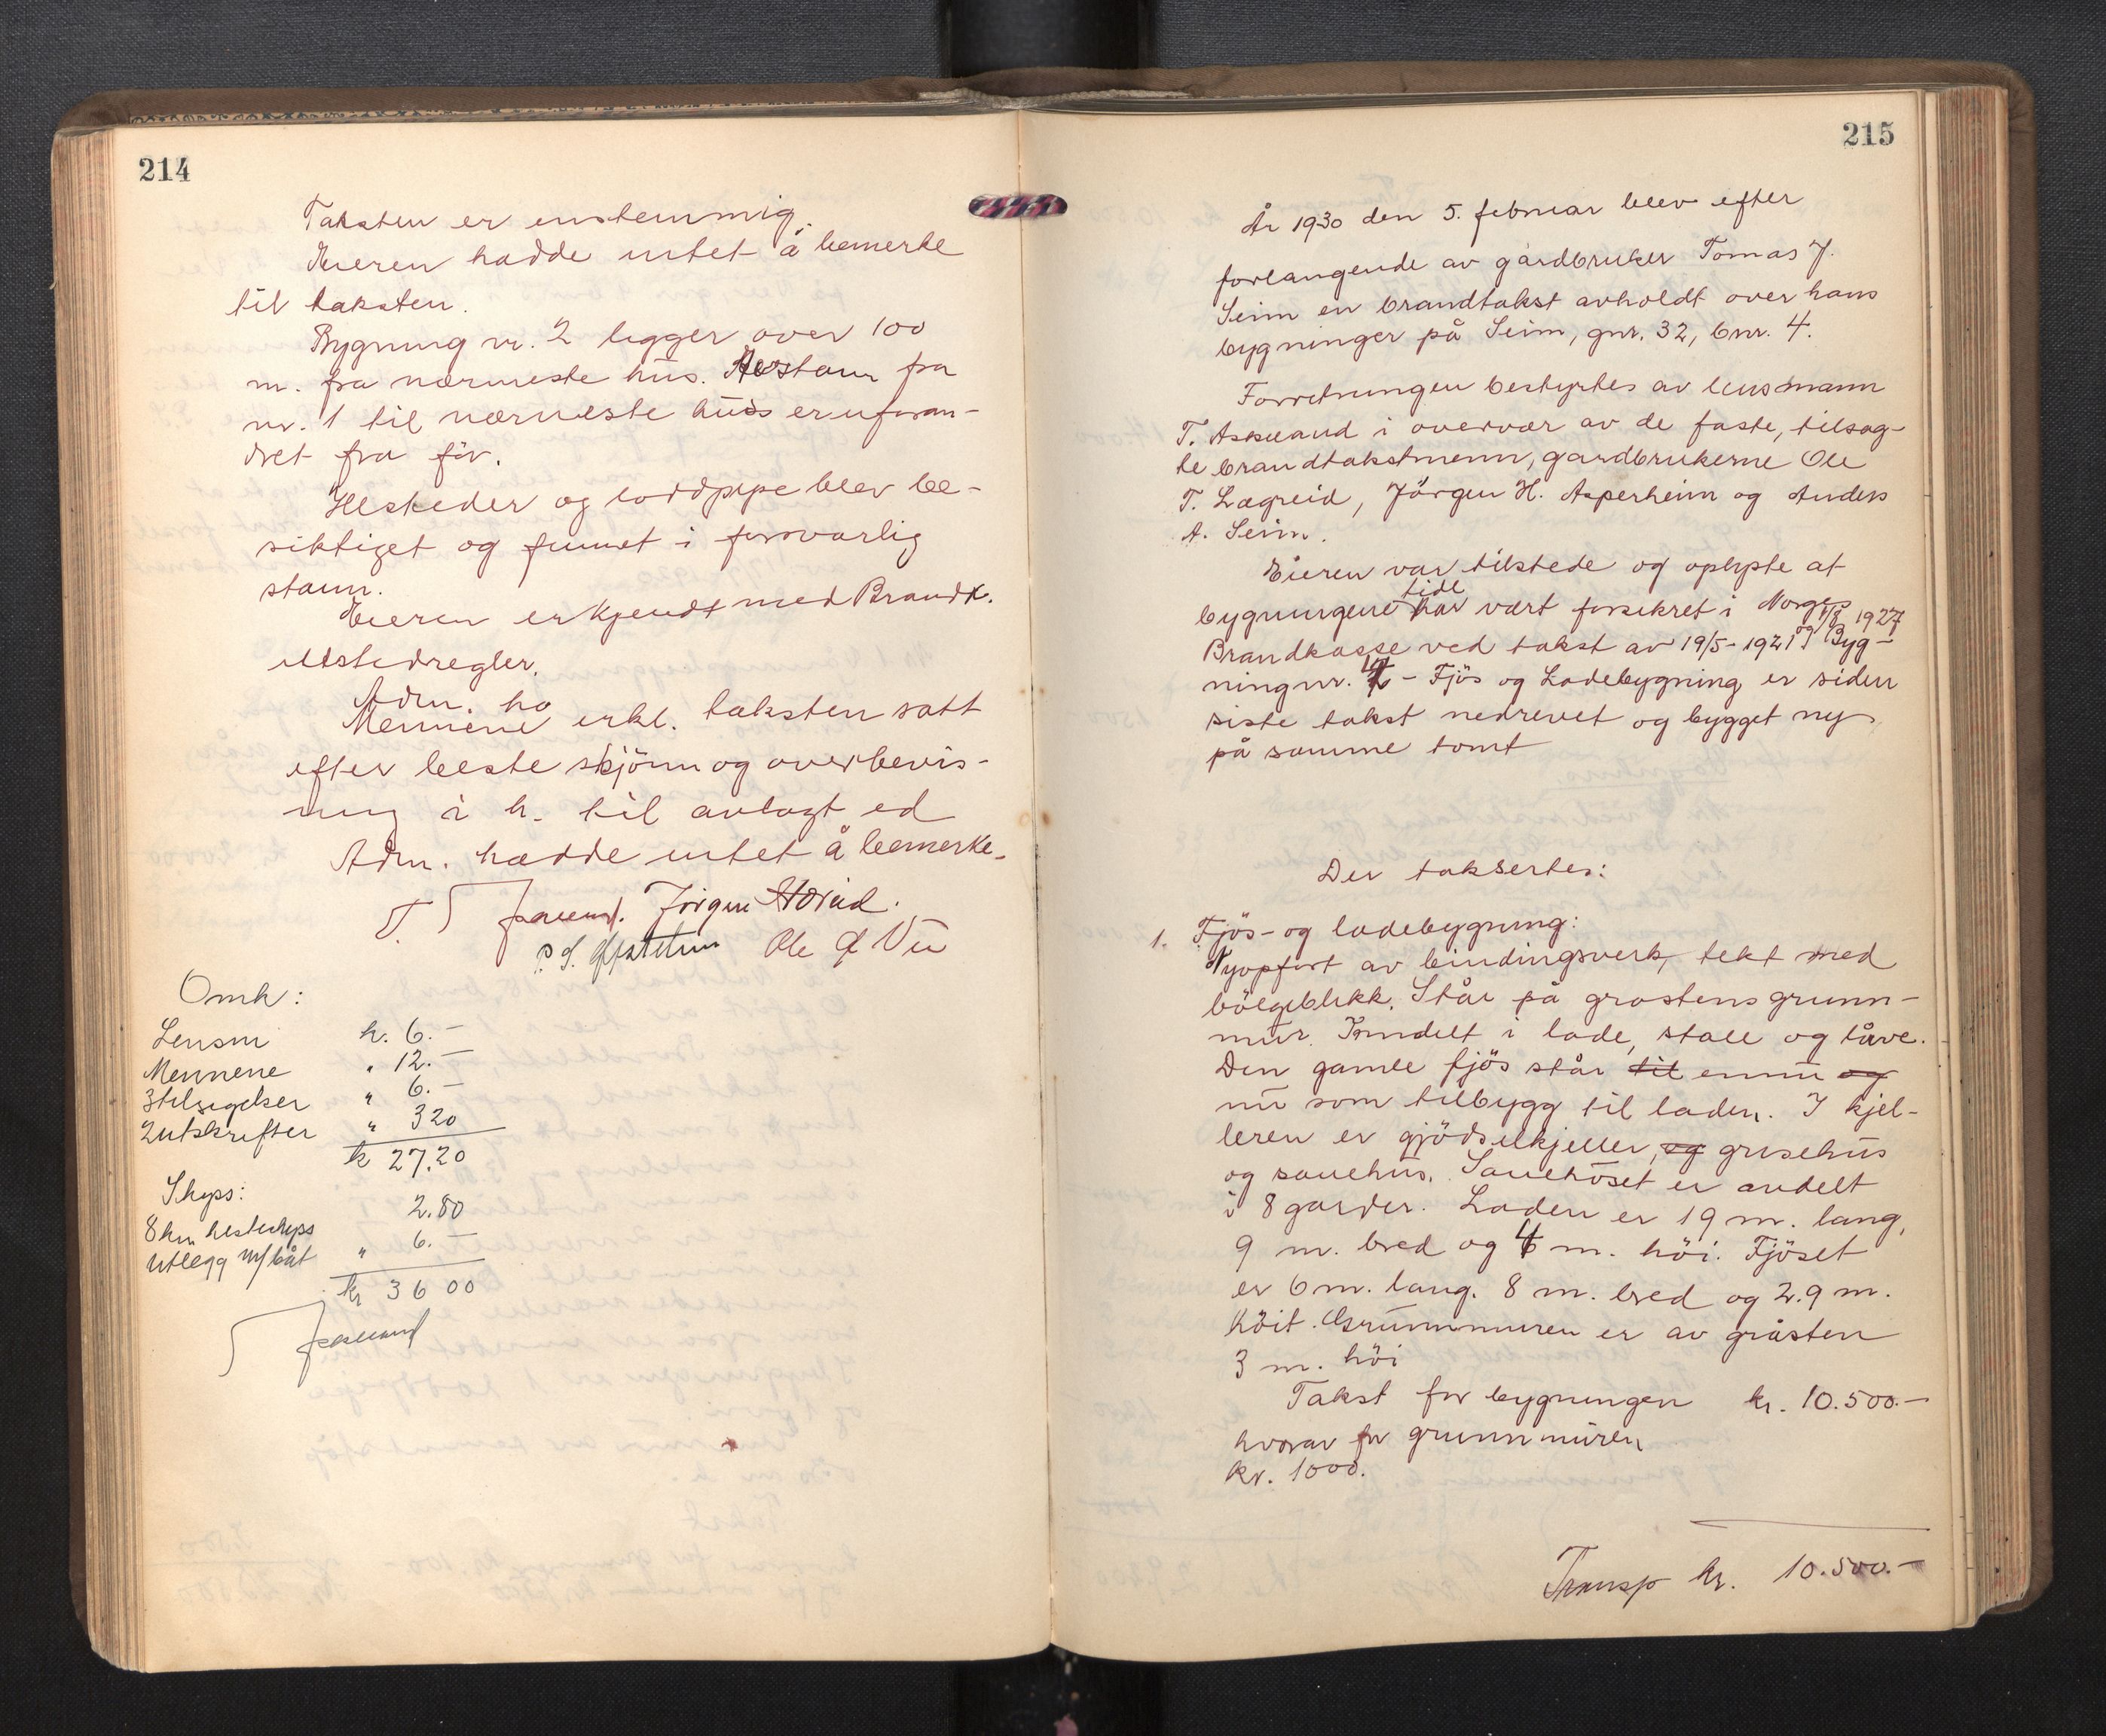 214
Taksten er enstemmig.
Eieren hadde intet å bemerke
til taksten.
Bygning nr. 2 ligger over 100
m. fra nærmeste hus. Avstann fra
nr. 1 til nærmeste huss er uforan-
dret fra för.
Ilesteder og loddpipe blev be-
siktiget og funnet i forsvarlig
stann.
Eieren er kjendt med Brandk.
ilstedregler.
Adm. ha
Mennene erkl. taksten satt
efter beste skjönn og overbevis-
ning i h. til avlagt ed
Adm. hadde intet å bemerke.
T. Jörgen
Ole
Omk:
Lensm k. 6.-
Mennene " 12.-
3 tilsigelser " 6.-
2 utskrifter " 320
k 27.20
Skyss:
2.80
8 km hesteskyss
Utlegg m/båt " 6.-
kr 36 00
215
År 1930 den 5. februar blev efter
forlangende av gårdbruker Tomas J.
Seim en brandtakst avholdt over hans
bygninger på Seim, gnr. 32, bnr. 4.
Forretningen bestyrtes av lensmann
T. Askeland i overvær av de faste, tilsag-
te brandtakstmenn, gardbrukerne Ole
T. Lægreid, Jörgen H. Asperheim og Anders
A. Seim.
Eieren var tilstede og oplyste at
tidl
bygningene har vært forsikret i Norges
1/8 1927
Brandkasse ved takst av 19/5-1921 og Byg-
ning nr. 4 - Fjös og Ladebygning er siden
siste takst nedrevet og bygget ny
på samme tomt
Der taksertes:
1. Fjös- og ladebygning:
Nyopfört av bindingsverk, tekt med
bölgeblikk. Står på grastens grunn-
mur. Inndelt i lade, stall og tåve.
Den gamle fjös står til ennu og
nu som tilbygg til laden. I kjel-
leren er gjödselkjeller, og grisehus
og sauehus. Sauehuset er avdelt
i 8 garder. Laden er 19 m. lang,
9 m. bred og 4 m. höi. Fjöset
er 6 m. lang. 8 m. bred og 2.9 m.
höit. Grunnmuren er av gråsten
3 m. höi
Takst for bygningen kr. 10.500.-
hvorav for grunnmuren
kr. 1000.
Transp kr. 10.500.-